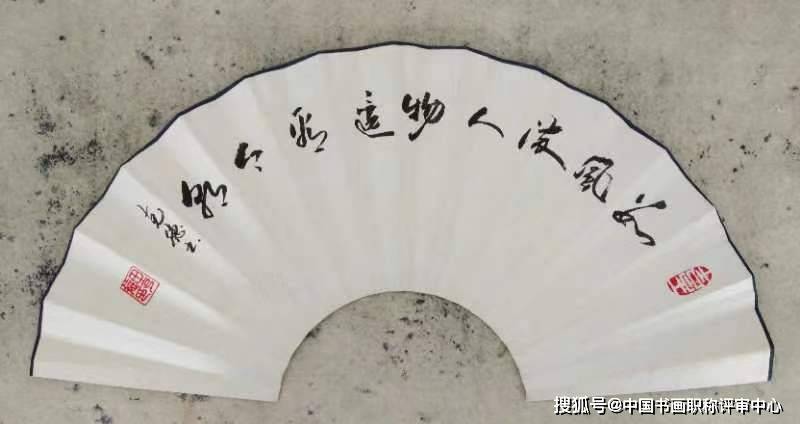 數風流人物還看今朝
搜狐号@中国书画职称评审中心